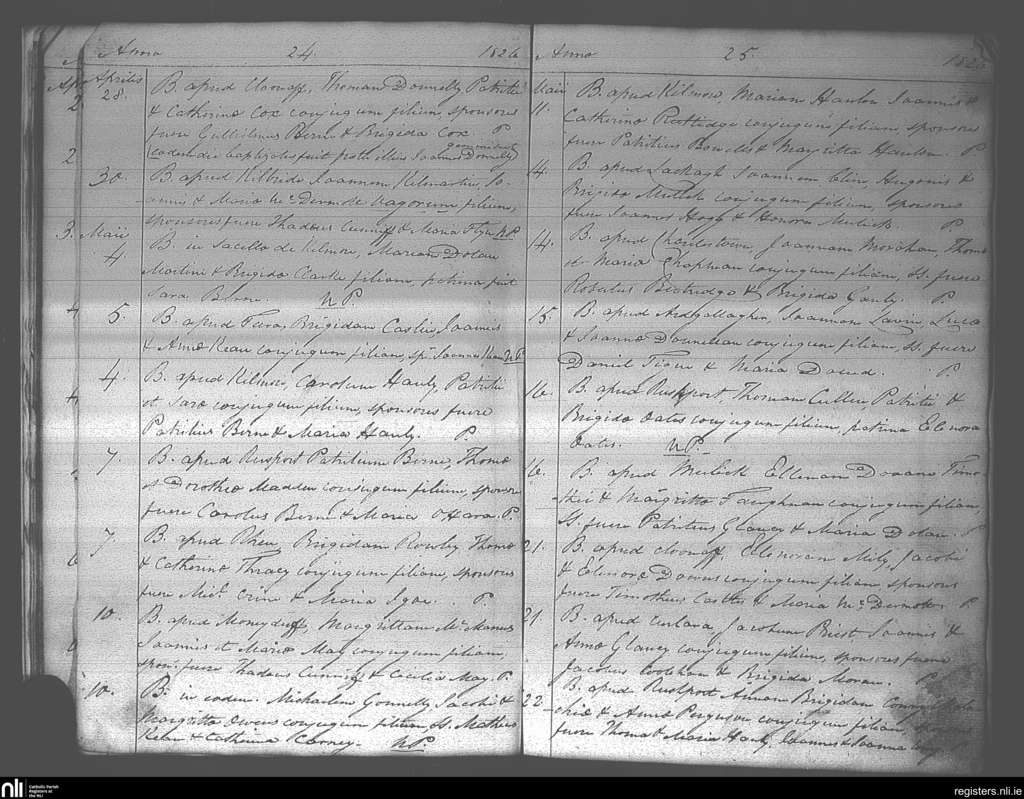 Anno 24 1826
Aprilis
28. B. apud Cloonaff, Thomam Donnelly Patritii
& Catherina Cox conjugum filium, sponsores
fuere Gullielmus Birne & Brigida Cox. P.
(eadem die baptizatus fuit frater illius geminus Joannes Donnelly)
30. B. apud Kilbride Joannem Kilmartin, Jo-
annis & Maria McDermott vagorum filium,
sponsores fuere Thadeus Cuniff & Maria Flyn NP.
Maii
4. B. in Sacello de Kilmore, Mariam Dolan
Martini & Brigida Clarke filiam, patrina fuit
Sara Birne. NP.
5. B. apud Brigidam Caslin, Joannis
& Anna Kean conjugum filiam, sps. Joannes Kean NP.
4. B. apud Kilmore, Carolum Hanly, Patritii
et Sara conjugum filium, sponsores fuere
Patritius Birne & Maria Hanly. P.
7. B. apud Rusport Patritium Birne, Thoma
et Dorothea Madden conjugum filium, sponsores
fuere Carolus Birne & Maria O'Hara. P.
7. B. apud Brigidam Rowly Thoma
& Catherina Thracy conjugum filiam, sponsores
fuere Michl. & Maria Igoe. P.
10. B. apud Moneyduff, Margrittam McManus
Joannis et Maria May conjugum filiam,
spons. fuere Thadeus Cuniff & Cecilia May. P.
10. B. in eodem. Michaelem Gonnelly Jacobi &
Margritta Owens conjugum filium Ss. Mathew
Kean & Catherina Karney. NP.
Anno 25 1826
Maii
11. B. apud Kilmore, Mariam Hanlon Joannis &
Catherina Rutledge conjugum filiam, sponsores
fuere Patritius Bowles & Margritta Hanlon. P.
14. B. apud Lackagh Joannem Hugonis &
Brigida Mulick conjugum filium, sponsores
fuere Joannes Hogg & Honora Mulick. P.
14. B. apud Charlestown, Joannem Morahan, Thoma
et Maria Chapman conjugum filium, Ss. fuere
Beatridge & Brigida Ganly. P.
15. B. apud Ardgallagher, Joannem Lavin, Luca
& Joanna Dounelan conjugum filium, Ss. fuere
Daniel Tigue & Maria Dowd. P.
16. B. apud Rusport, Thomam Cullen, Patritii &
Brigida Oates conjugum filium, patrina Elenora
Oates. NP.
16. B. apud Mulick Ellenam Timo-
thei & Margritta Faughnan conjugum filiam
Ss. fuere Patritius Glancy & Maria Dolan. P
21. B. apud Cloonaff, Elenoram Mily, Jacobi
& Elenora Downs conjugum filiam sponsores
fuere Timotheus Casttes & Maria McDermott. P.
21 B. apud Jacobum Briest Joannis &
Anna Glancy conjugum filium, sponsores fuere
Jacobus & Brigida Moran. P.
22 B. apud Rusport Annam Brigidam
& Anna Ferguson conjugum filiam, sponsores
fuere Thomas & Maria Hanly, Joannes & Joanna
nli Catholic Parish
Registers at
the NLI
registers.nli.ie